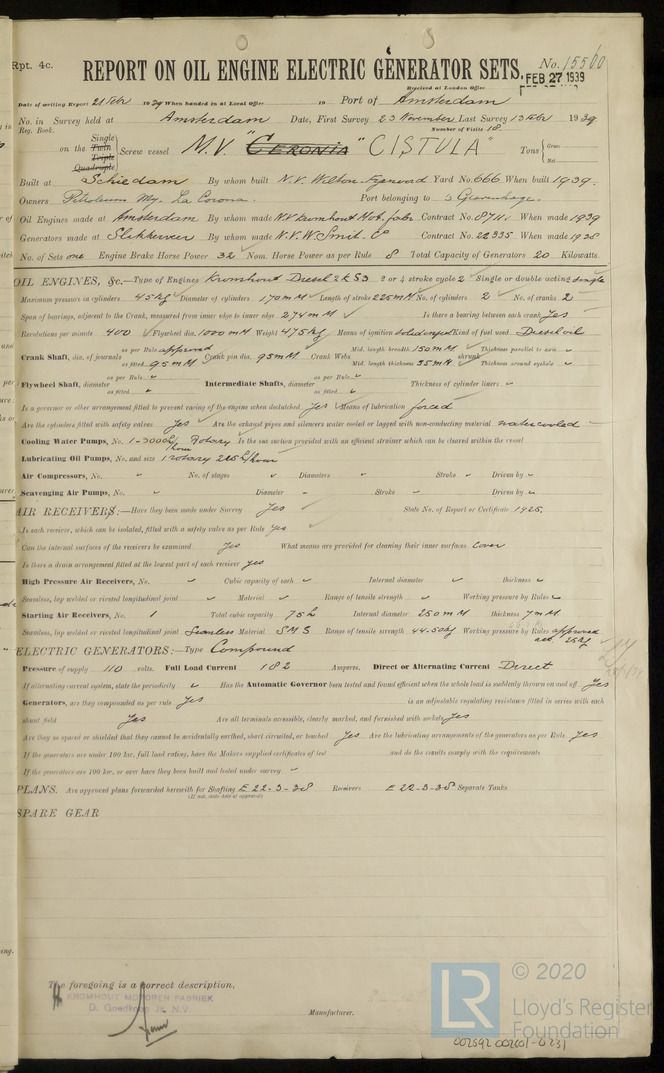 Rpt. 4c.
REPORT ON OIL ENGINE ELECTRIC GENERATOR SETS.
No. 15560
Received at London Office
FEB 27 1939
Date of writing Report 21 Febr 1939 When handed in at Local Office 19 Port of Amsterdam
No. in Survey held at Amsterdam Date, First Survey 23 November Last Survey 13 Febr 1939
Reg. Book. Number of Visits 18
on the Single Twin Triple Quadruple Screw vessel M.V. "CERONIA" "CISTULA" Tons Gross Net
Built at Schiedam By whom built N.V. Wilton-Fijenoord Yard No. 666 When built 1939.
Owners Petroleum My. La Corona. Port belonging to 's Gravenhage.
Oil Engines made at Amsterdam By whom made N.V. Kromhout Mot. fabr Contract No. 8711. When made 1939
Generators made at Slikkerveer By whom made N.V. W. Smit. Co Contract No. 22335 When made 1938
No. of Sets one Engine Brake Horse Power 32 Nom. Horse Power as per Rule 8 Total Capacity of Generators 20 Kilowatts.
OIL ENGINES, &c.—Type of Engines Kromhout Diesel 2 K S3 2 or 4 stroke cycle 2 Single or double acting Single
Maximum pressure in cylinders 45 kg Diameter of cylinders 170 mM Length of stroke 225 mM No. of cylinders 2 No. of cranks 2
Span of bearings, adjacent to the Crank, measured from inner edge to inner edge 274 mM Is there a bearing between each crank Yes
Revolutions per minute 400 Flywheel dia. 1000 mM Weight 475 kg Means of ignition solid inject Kind of fuel used Diesel oil
Crank Shaft, dia. of journals as per Rule approved as fitted 95 mM Crank pin dia. 95 mM Crank Webs Mid. length breadth 150 mM Mid. length thickness 55 mM shrunk Thickness parallel to axis Thickness around eyehole
Flywheel Shaft, diameter as per Rule as fitted Intermediate Shafts, diameter as per Rule as fitted Thickness of cylinder liners
Is a governor or other arrangement fitted to prevent racing of the engine when declutched Yes Means of lubrication forced
Are the cylinders fitted with safety valves Yes Are the exhaust pipes and silencers water cooled or lagged with non-conducting material water cooled
Cooling Water Pumps, No. 1-3000 L/hour Rotary Is the sea suction provided with an efficient strainer which can be cleared within the vessel
Lubricating Oil Pumps, No. and size 1 rotary 225 L/hour
Air Compressors, No. No. of stages Diameters Stroke Driven by
Scavenging Air Pumps, No. Diameter Stroke Driven by
AIR RECEIVERS:—Have they been made under Survey Yes State No. of Report or Certificate 1925.
Is each receiver, which can be isolated, fitted with a safety valve as per Rule Yes
Can the internal surfaces of the receivers be examined Yes What means are provided for cleaning their inner surfaces cover
Is there a drain arrangement fitted at the lowest part of each receiver yes
High Pressure Air Receivers, No. Cubic capacity of each Internal diameter thickness
Seamless, lap welded or riveted longitudinal joint Material Range of tensile strength Working pressure by Rules
Starting Air Receivers, No. 1 Total cubic capacity 75 L Internal diameter 250 mM thickness 7 mM
Seamless, lap welded or riveted longitudinal joint Seamless Material SMS Range of tensile strength 44-50 kg Working pressure by Rules approved 25 kg
ELECTRIC GENERATORS:—Type Compound
Pressure of supply 110 volts. Full Load Current 182 Amperes. Direct or Alternating Current Direct
If alternating current system, state the periodicity Has the Automatic Governor been tested and found efficient when the whole load is suddenly thrown on and off Yes
Generators, are they compounded as per rule Yes is an adjustable regulating resistance fitted in series with each
shunt field Yes Are all terminals accessible, clearly marked, and furnished with sockets Yes
Are they so spaced or shielded that they cannot be accidentally earthed, short circuited, or touched Yes Are the lubricating arrangements of the generators as per Rule Yes
If the generators are under 100 kw. full load rating, have the Makers supplied certificates of test and do the results comply with the requirements
If the generators are 100 kw. or over have they been built and tested under survey
PLANS. Are approved plans forwarded herewith for Shafting E 22-3-38 Receivers E 22-3-38 Separate Tanks
(If not, state date of approval)
SPARE GEAR
The foregoing is a correct description,
KROMHOUT MOTOREN FABRIEK
D. Goedkoop Jr. N.V.
Manufacturer.
LR © 2020
Lloyd's Register
Foundation
002592-002601-0231